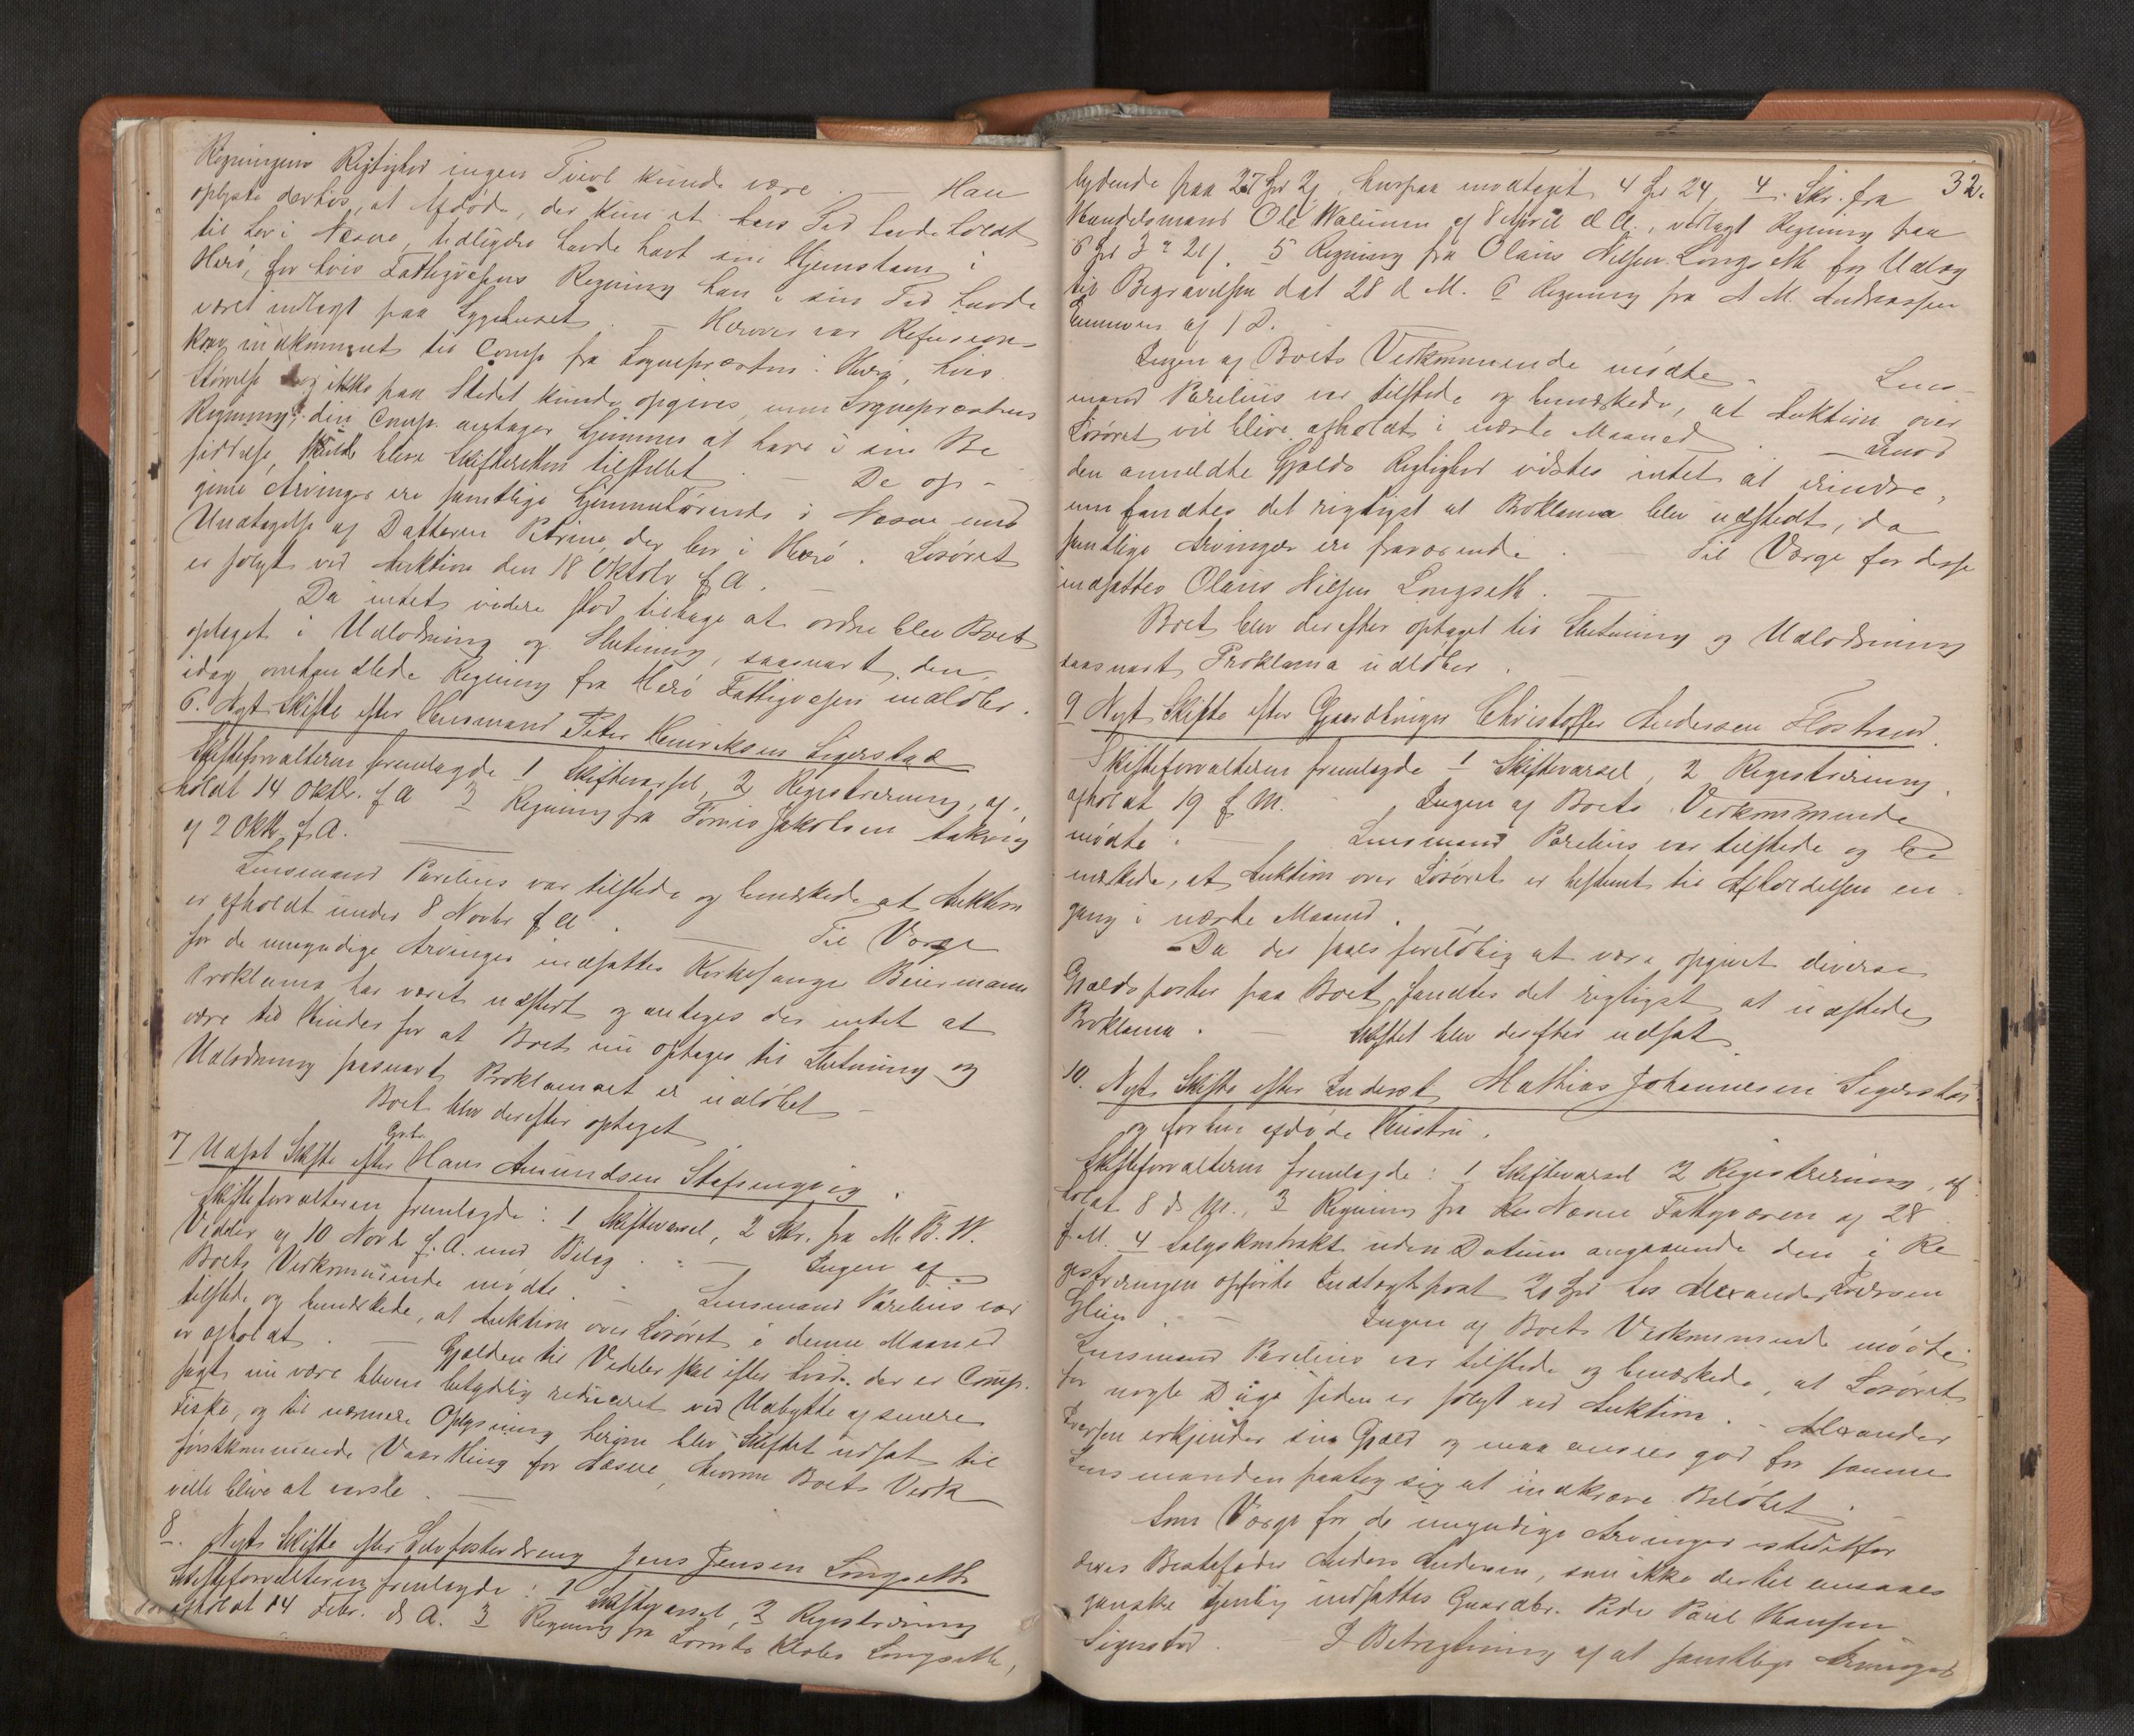 Regningens Rigtighed ingen Tvivl kunde være. — Han
oplyste derhos, at Afdøde, der kun et Aars Tid havde holdt
til her i Næsne, tidligere havde havt sin Hjemstavn i
Herø, for hvis Fattigvæsens Regning han i sin Tid havde
været indlagt paa Sygehuset. — Herover var Refusions-
krav indkommet til Comp. fra Sognepræsten i Herø, hvis
Størrelse dog ikke paa Stedet kunde opgives, men Sognepræstens
Regning, den Comp. antager hjemme at have i sin Be-
siddelse, skulde blive Skifteretten tilstillet — De op-
givne Arvinger ere samtlige hjemmehørende i Næsne med
Undtagelse af Datteren Petrine, der bor i Herø. Løsøret
er solgt ved Auktion den 18 Oktobr f. A.
Da intet videre stod tilbage at ordne blev Boet
optaget i Udlodning og Slutning, saasnart den
idag omhandlede Regning fra Herø Fattigvæsen indløber.
6. Nyt Skifte efter Huusmand Peter Henriksen Sigerstad
Skifteforvalteren fremlagde 1 Skiftevarsel, 2 Registrering, af-
holdt 14 Oktbr. f A 3 Regning fra Tønnes Jakobsen
af 2 Oktb. f. A.
Lensmand Parelius var tilstede og bemærkede at Auktion
er afholdt under 8 Novbr f A. — Til Værge
for de umyndige Arvinger indsattes Kirkesanger Beiermann
Proklama har været udstedt og antoges der intet at
være til Hinder for at Boet nu optages til Slutning og
Udlodning saasnart Proklamaet er udløbet —
Boet blev derefter optaget
7 Udsat Skifte efter Gbr. Hans Amundsen
Skifteforvalteren fremlagde: 1 Skiftevarsel, 2 Skr. fra M. B. W.
af 10 Novbr f. A. med Bilag. — Ingen af
Boets Vedkommende mødte. — Lensmand Parelius var
tilstede og bemærkede, at Auktion over Løsøret i denne Maaned
er afholdt. — Gjælden til skal efter hvad der er Comp.
sagt nu være bleven betydelig reduceret ved Udbytte af senere
Fiske, og til nærmere Oplysning herom blev Skiftet udsat til
førstkommende Vaarthing for Næsne, hvorom Boets Vedk
ville blive at varsle. —
8. Nyt Skifte efter Jens Jensen Longseth
Skifteforvalteren fremlagde: 1 Skiftevarsel, 2 Registrering
afholdt 14 Febr. d. A. 3 Regning fra Longseth,
32.
lydende paa 27 hvorpaa modtaget 4 24, 4. Skr. fra
Handelsmand Ole Walnum af 8 April d A., vedlagt Regning paa
5 Regning fra Olaus Nilsen Longseth for Udlæg
til Begravelsen dat 28 d M. 6 Regning fra A M. Andreassen
af 1 D.
Ingen af Boets Vedkommende mødte. — Lens-
mand Parelius var tilstede og bemærkede, at Auktion over
Løsøret vil blive afholdt i næste Maaned. — Imod
den anmeldte Gjælds Rigtighed vidstes intet at erindre,
men fandtes det rigtigst at Proklama blev udstedt, da
samtlige Arvinger ere fraværende. Til Værge for disse
indsattes Olaus Nilsen Longseth. —
Boet blev derefter optaget til Slutning og Udlodning
saasnart Proklama udløber. —
9 Nyt Skifte efter Gaardbruger Christoffer Andersen Flostrand.
Skifteforvalteren fremlagde 1 Skiftevarsel, 2 Registrering
afholdt 19 f M. Ingen af Boets Vedkommende
mødte. — Lensmand Parelius var tilstede og be-
mærkede, at Auktion over Løsøret er bestemt til Afholdelse en-
gang i næste Maaned.
Da der sees foreløbig at være opgivet diverse
Gjældsposter paa Boet, fandtes det rigtigst at udstede
Proklama. — Skiftet blev derefter udsat
10. Nyt Skifte efter Inderst Mathias Johannesen Sigerstad
og forhen afdøde Hustru.
Skifteforvalteren fremlagde: 1 Skiftevarsel 2 Registrering, af-
holdt 8 ds M., 3 Regning fra Næsne Fattigvæsen af 28
f. M. 4 Salgskontrakt uden Datum angaaende den i Re-
gistreringen opførte Indtægtspost 20 hos Alexander Iversen
. — Ingen af Boets Vedkommende mødte
Lensmand Parelius var tilstede og bemærkede, at Løsøret
for nogle Dage siden er solgt ved Auktion. — Alexander
Iversen erkjender sin Gjæld og maa ansees god for samme
Lensmanden paatog sig at indkræve Beløbet. —
Som Værge for de umyndige Arvinger istedetfor
deres Bestefader Anders Andersen, som ikke dertil ansaaes
ganske tjenlig indsattes Gaardbr. Peder Paul Hansen
Sigerstad. — I Betragtning af at samtlige Arvinger